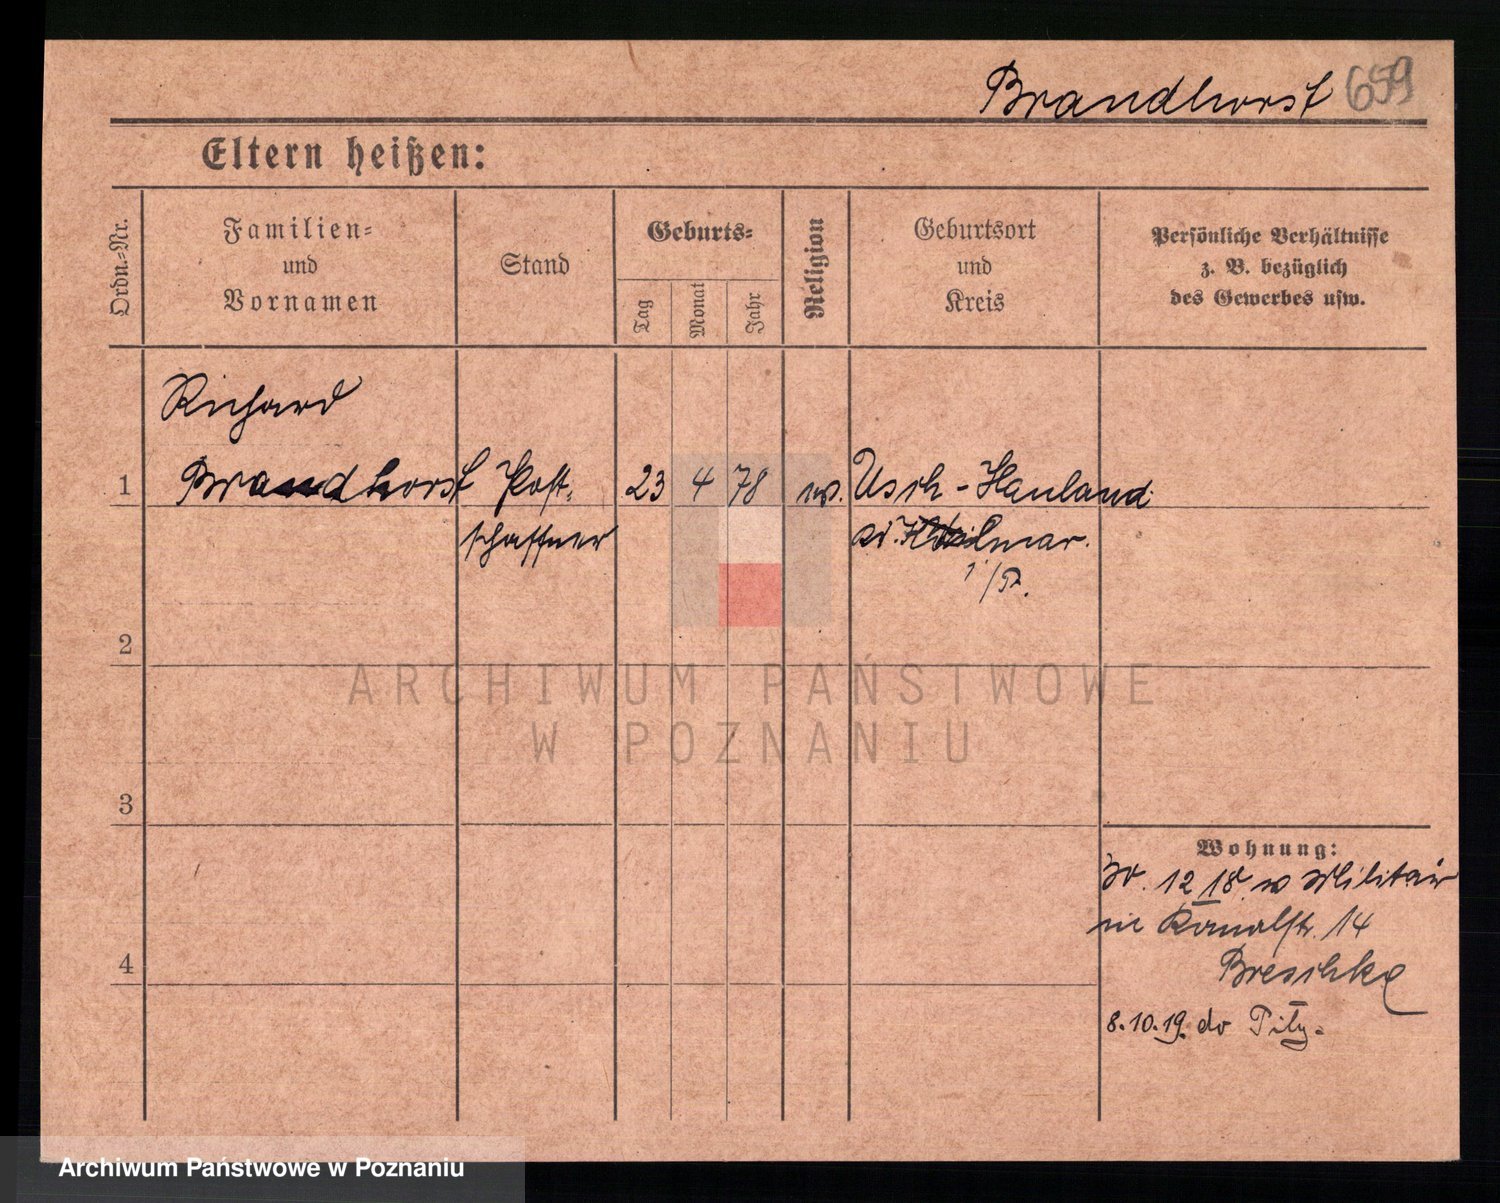 Brandhorst 659
Eltern heißen:
Ordn.-Nr.
Familien-
und
Vornamen
Stand
Geburts-
Tag
Monat
Jahr
Religion
Geburtsort
und
Kreis
Persönliche Verhältnisse
z. B. bezüglich
des Gewerbes usw.
Richard
1 Brandhorst Post- 23 4 78 Usch-Hauland
schaffner Kr. Kolmar.
i/P.
2
3
4
Wohnung:
12 18 Militär
in Kanalstr. 14
Breschke
8.10.19. do Piły.
ARCHIWUM PAŃSTWOWE
W POZNANIU
Archiwum Państwowe w Poznaniu